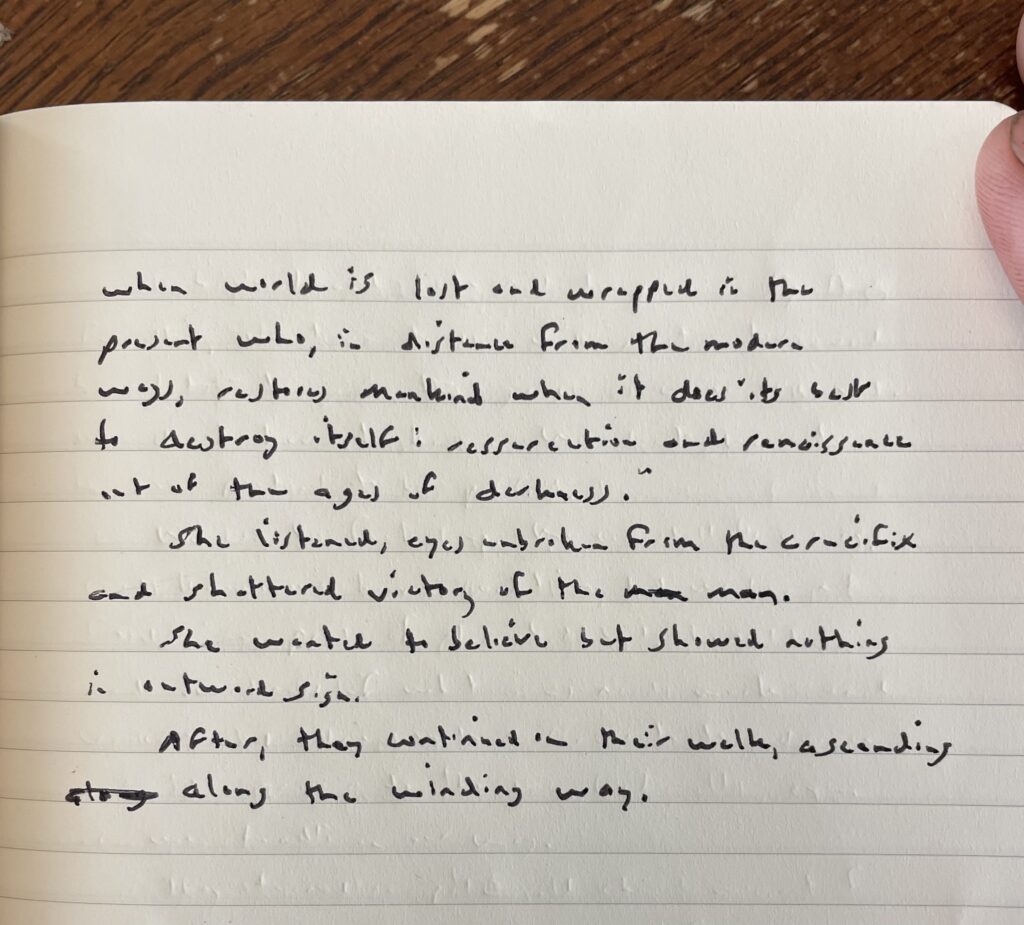 when world is lost and wrapped in the
present who, in distance from the modern
ways, restores mankind when it does its best
to destroy itself: ressurection and renaissance
out of the ages of darkness."
She listened, eyes unbroken from the crucifix
and shattered victory of the man.
She wanted to believe but showed nothing
in outward sign.
After, they continued on their walk, ascending
along along the winding way.